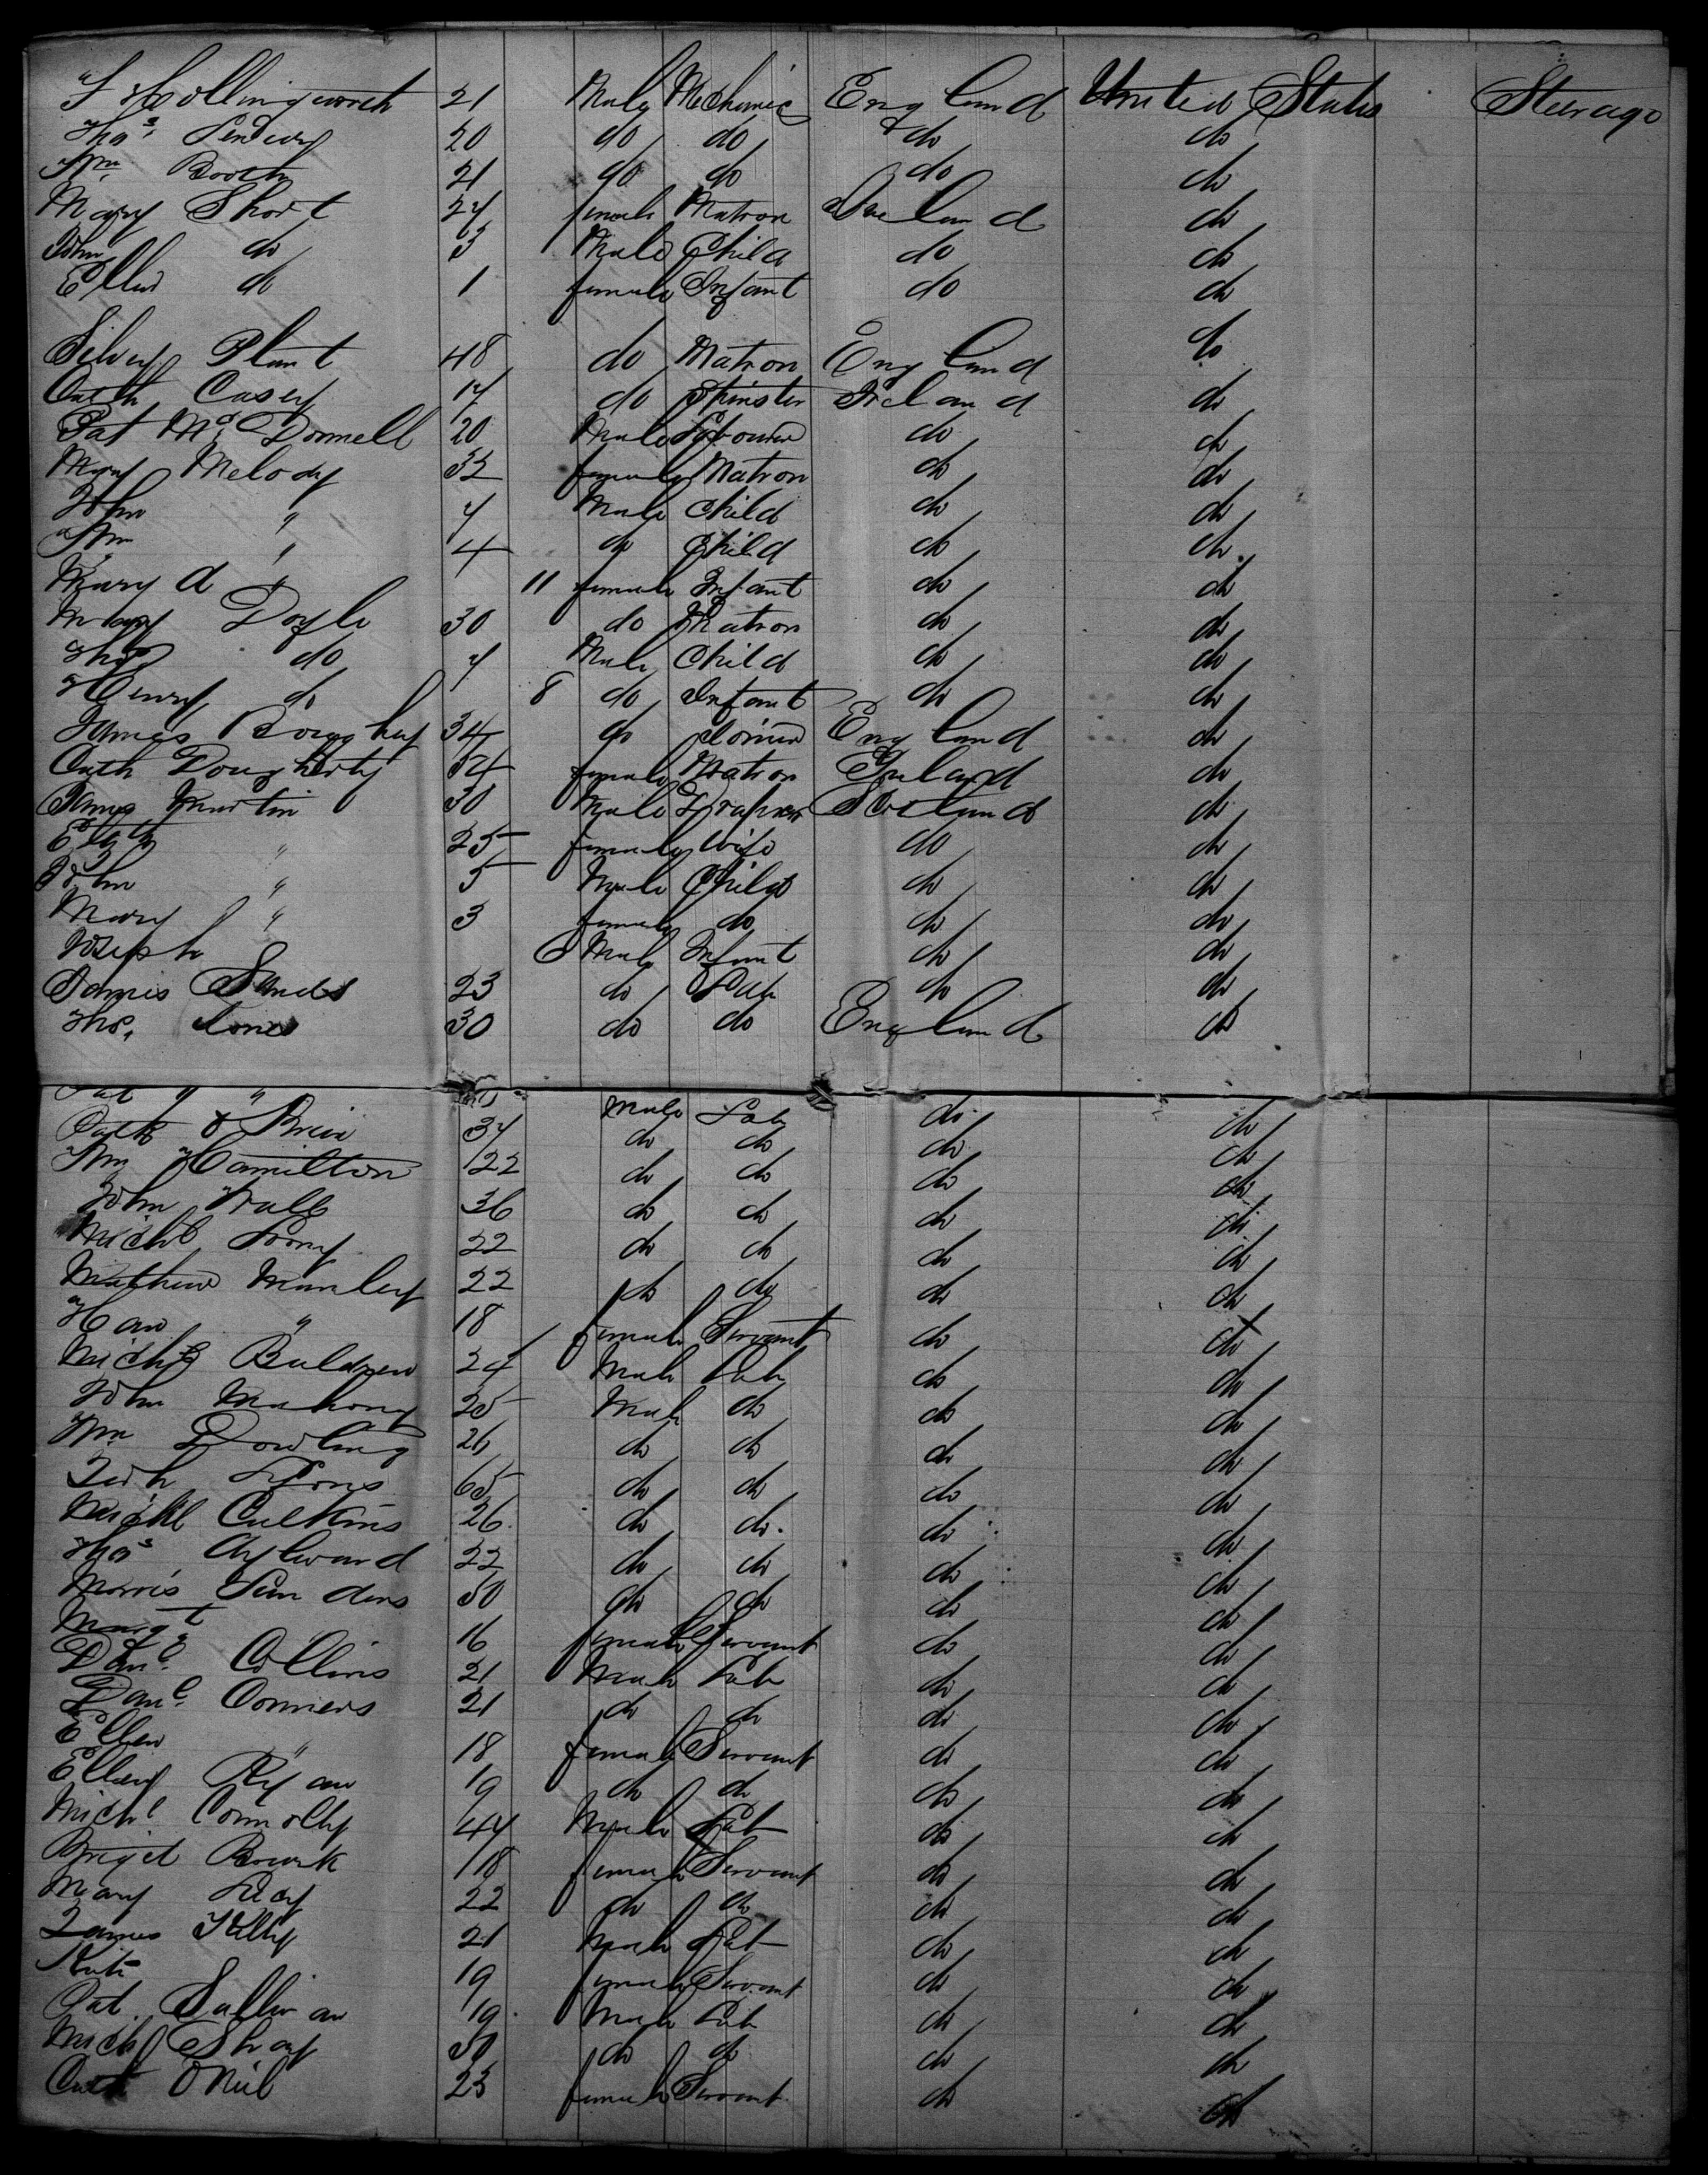 J Hollingworth 21 Male Mechanic England United States Steerage
Thos 20 do do do do
Wm Booth 21 do do do do
Mary Short 24 female Matron Ireland do
John do 3 Male Child do do
Ellen do 1 female Infant do do
Plant 48 do Matron England do
Cath Casey 17 do Spinster Ireland do
Pat Mc Donnell 20 Male Labourer do do
Mary Melody 32 female Matron do do
John " 7 Male Child do do
Wm " 4 do Child do do
Mary A " 11 female Infant do do
Mary Doyle 30 do Matron do do
Thos do 4 Male Child do do
Henry do 8 do Infant do do
James 34 do Joiner England do
Cath Dougherty 54 female Matron Ireland do
James Martin 30 Male Draper Scotland do
Elizth " 25 female Wife do do
John " 5 Male Child do do
Mary " 3 female do do do
Joseph 6 Male Infant do do
James Sands 23 do Lab do do
Thos. Jones 30 do do England do
Pat " " Male Lab do do
Cath O Brien 34 do do do do
Wm Hamilton 22 do do do do
John Wall 36 do do do do
Michl 22 do do do do
Mathew Manley 22 do do do do
Han " 18 female Servant do do
Michl Baldwin 24 Male Lab do do
John Mahony 25 Male do do do
Wm Dowling 26 do do do do
Lyons 65 do do do do
Michl Culkins 26 do do. do do
Thos Aylward 22 do do do do
Morris 50 do do do do
Margt " 16 female Servant do do
Danl. Collins 21 Male Lab do do
Danl. Conners 21 do do do do
Ellen " 18 female Servant do do
Ellen Ryan 19 do do do do
Michl Connolly 44 Male Lab do do
Briget Bourk 18 female Servant do do
Mary 22 do do do do
James Kelly 21 Male Lab do do
Kate 19 female Servant do do
Pat. Sullivan 19 Male Lab do do
Michl Shay 30 do do do do
Cath O Neil 23 female Servant do do